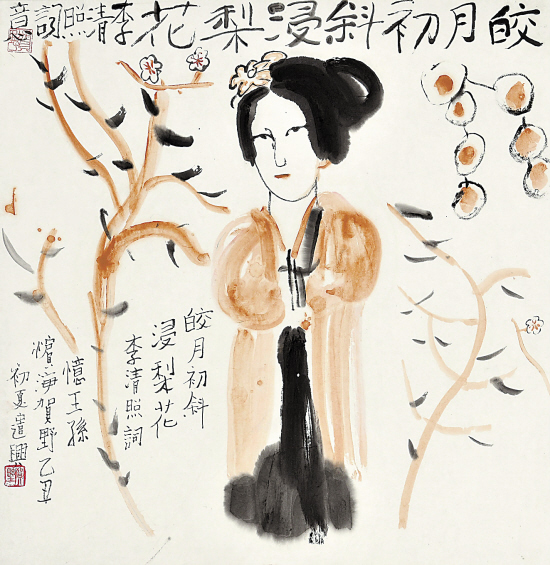 皎月初斜浸梨花李清照詞意
皎月初斜
浸梨花
李清照詞
憶王孫
海賀野乙丑
初夏遣興